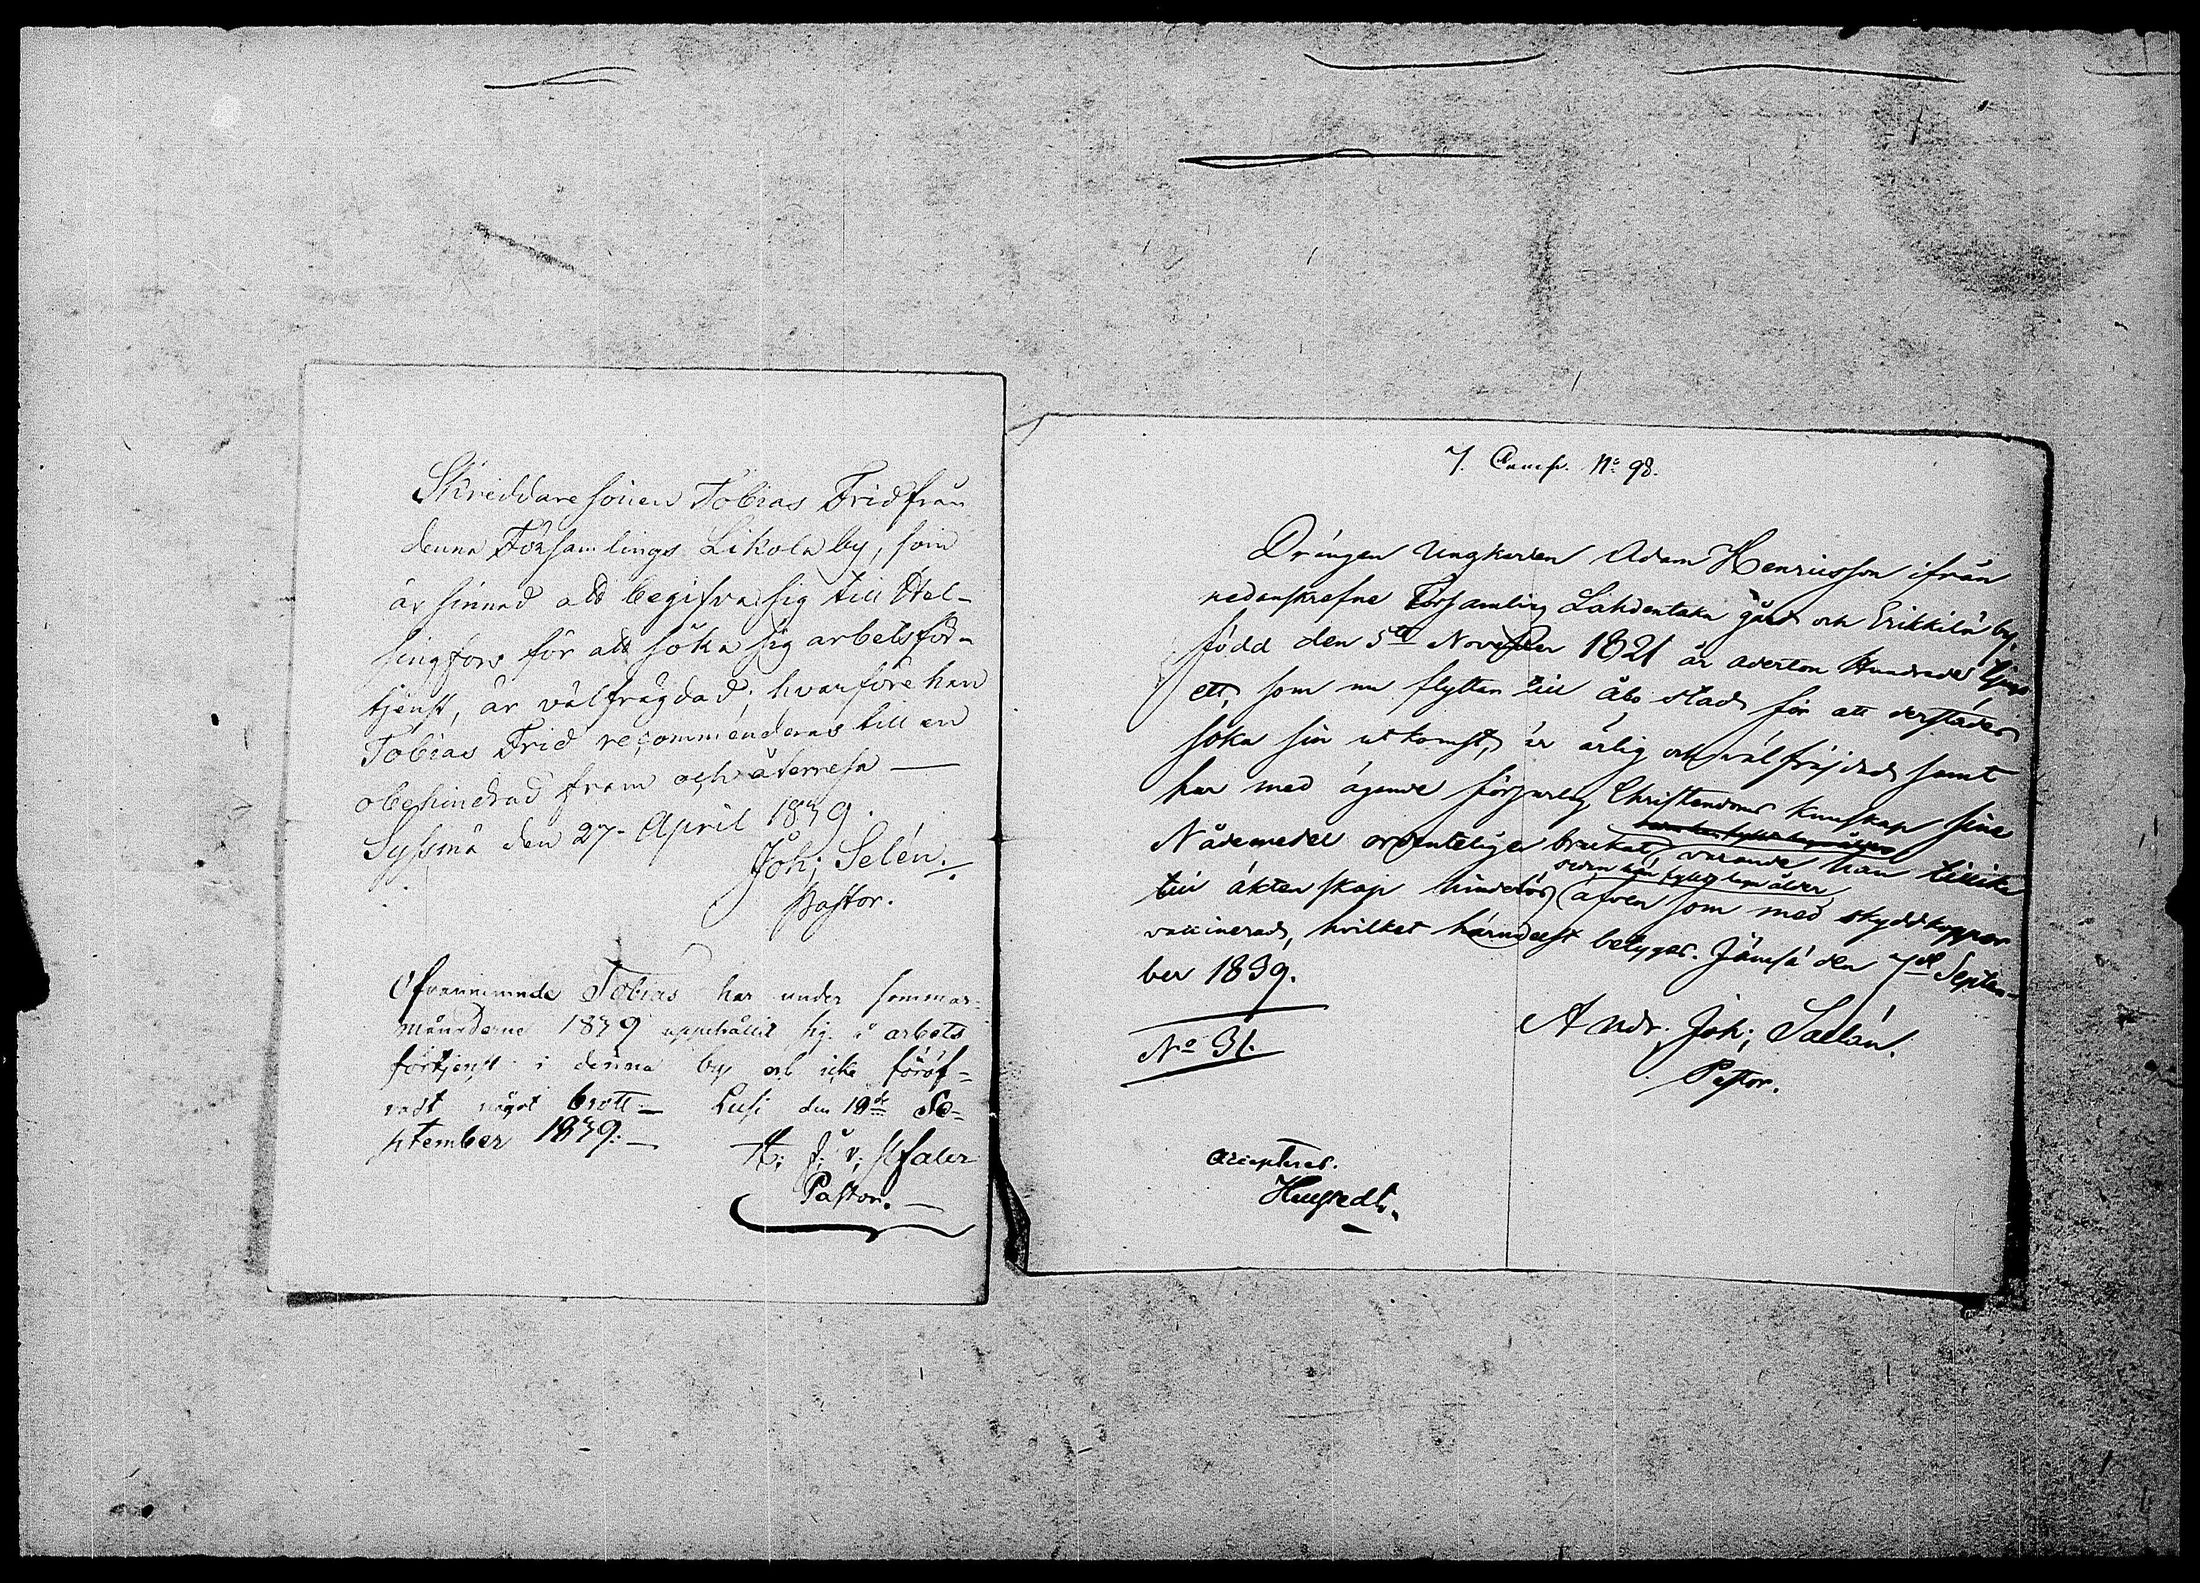 Skreddaresonen Tobias Frid från
denna Församlings Likola by, som
är sinnad att begifva sig till Hel-
singfors för att söka sig arbetsför-
tjenst, är välfrägdad; hvarföre han
Tobias Frid recommenderas till en
obehindrad fram och återresa —
Syssmä den 27 April 1839.
Joh; Selén.
Pastor.
Ofvannämnde Tobias har under sommar-
månaderne 1839 uppehållit sig å arbets
förtjenst i denna by och icke föröf-
vadt något brott — Lusi den 19de Se-
ptember 1839. —
Pastor. —
7. Camp. No 98.
Drängen Ungkarlen Adam Henricsson ifrån
nedanskrefne Församling Lahdentaka gård och Erikkilä by,
född den 5te November 1821 är aderton Hundrade tjugu
ett, som nu flyttar till Åbo stad för att derstädes
söka sin utkomst, är ärlig och välfräjdad samt
har med ägande försvarlig Christendoms kunskap sine
Nådemedel ordenteligen brukat, varande han tillika
till äktenskap hinderlös äfven som med skyddskoppor
vaccinerad, hvilket härmedelst betygas. Jämsä den 7de Septem-
ber 1839.
Andr. Joh; Saelan.
Pastor.
No 31.
Accepteras.